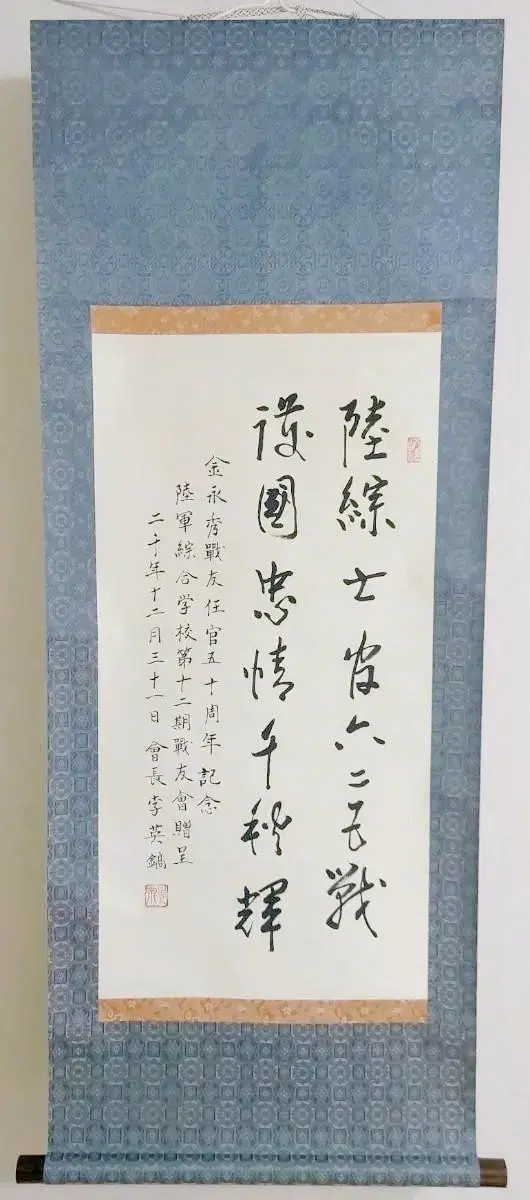 陸綜士官六二五戰
護國忠情千秋輝
金永秀戰友任官五十周年 記念
陸軍綜合学校第十二期戰友會贈呈
二千年十二月三十一日 會長 李英鎬